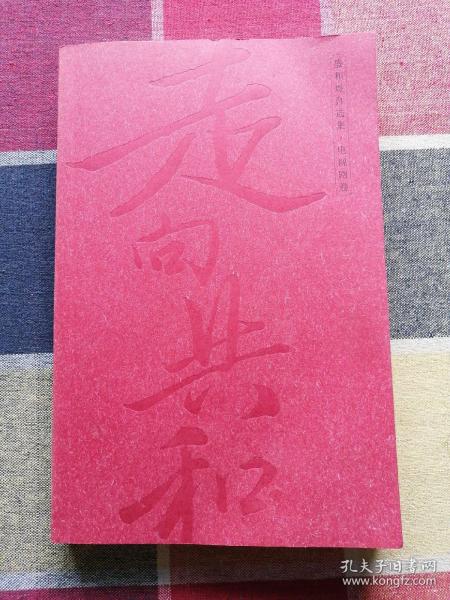 走向共和
盛和煜自选集·电视剧卷
孔夫子旧书网
www.kongfz.com